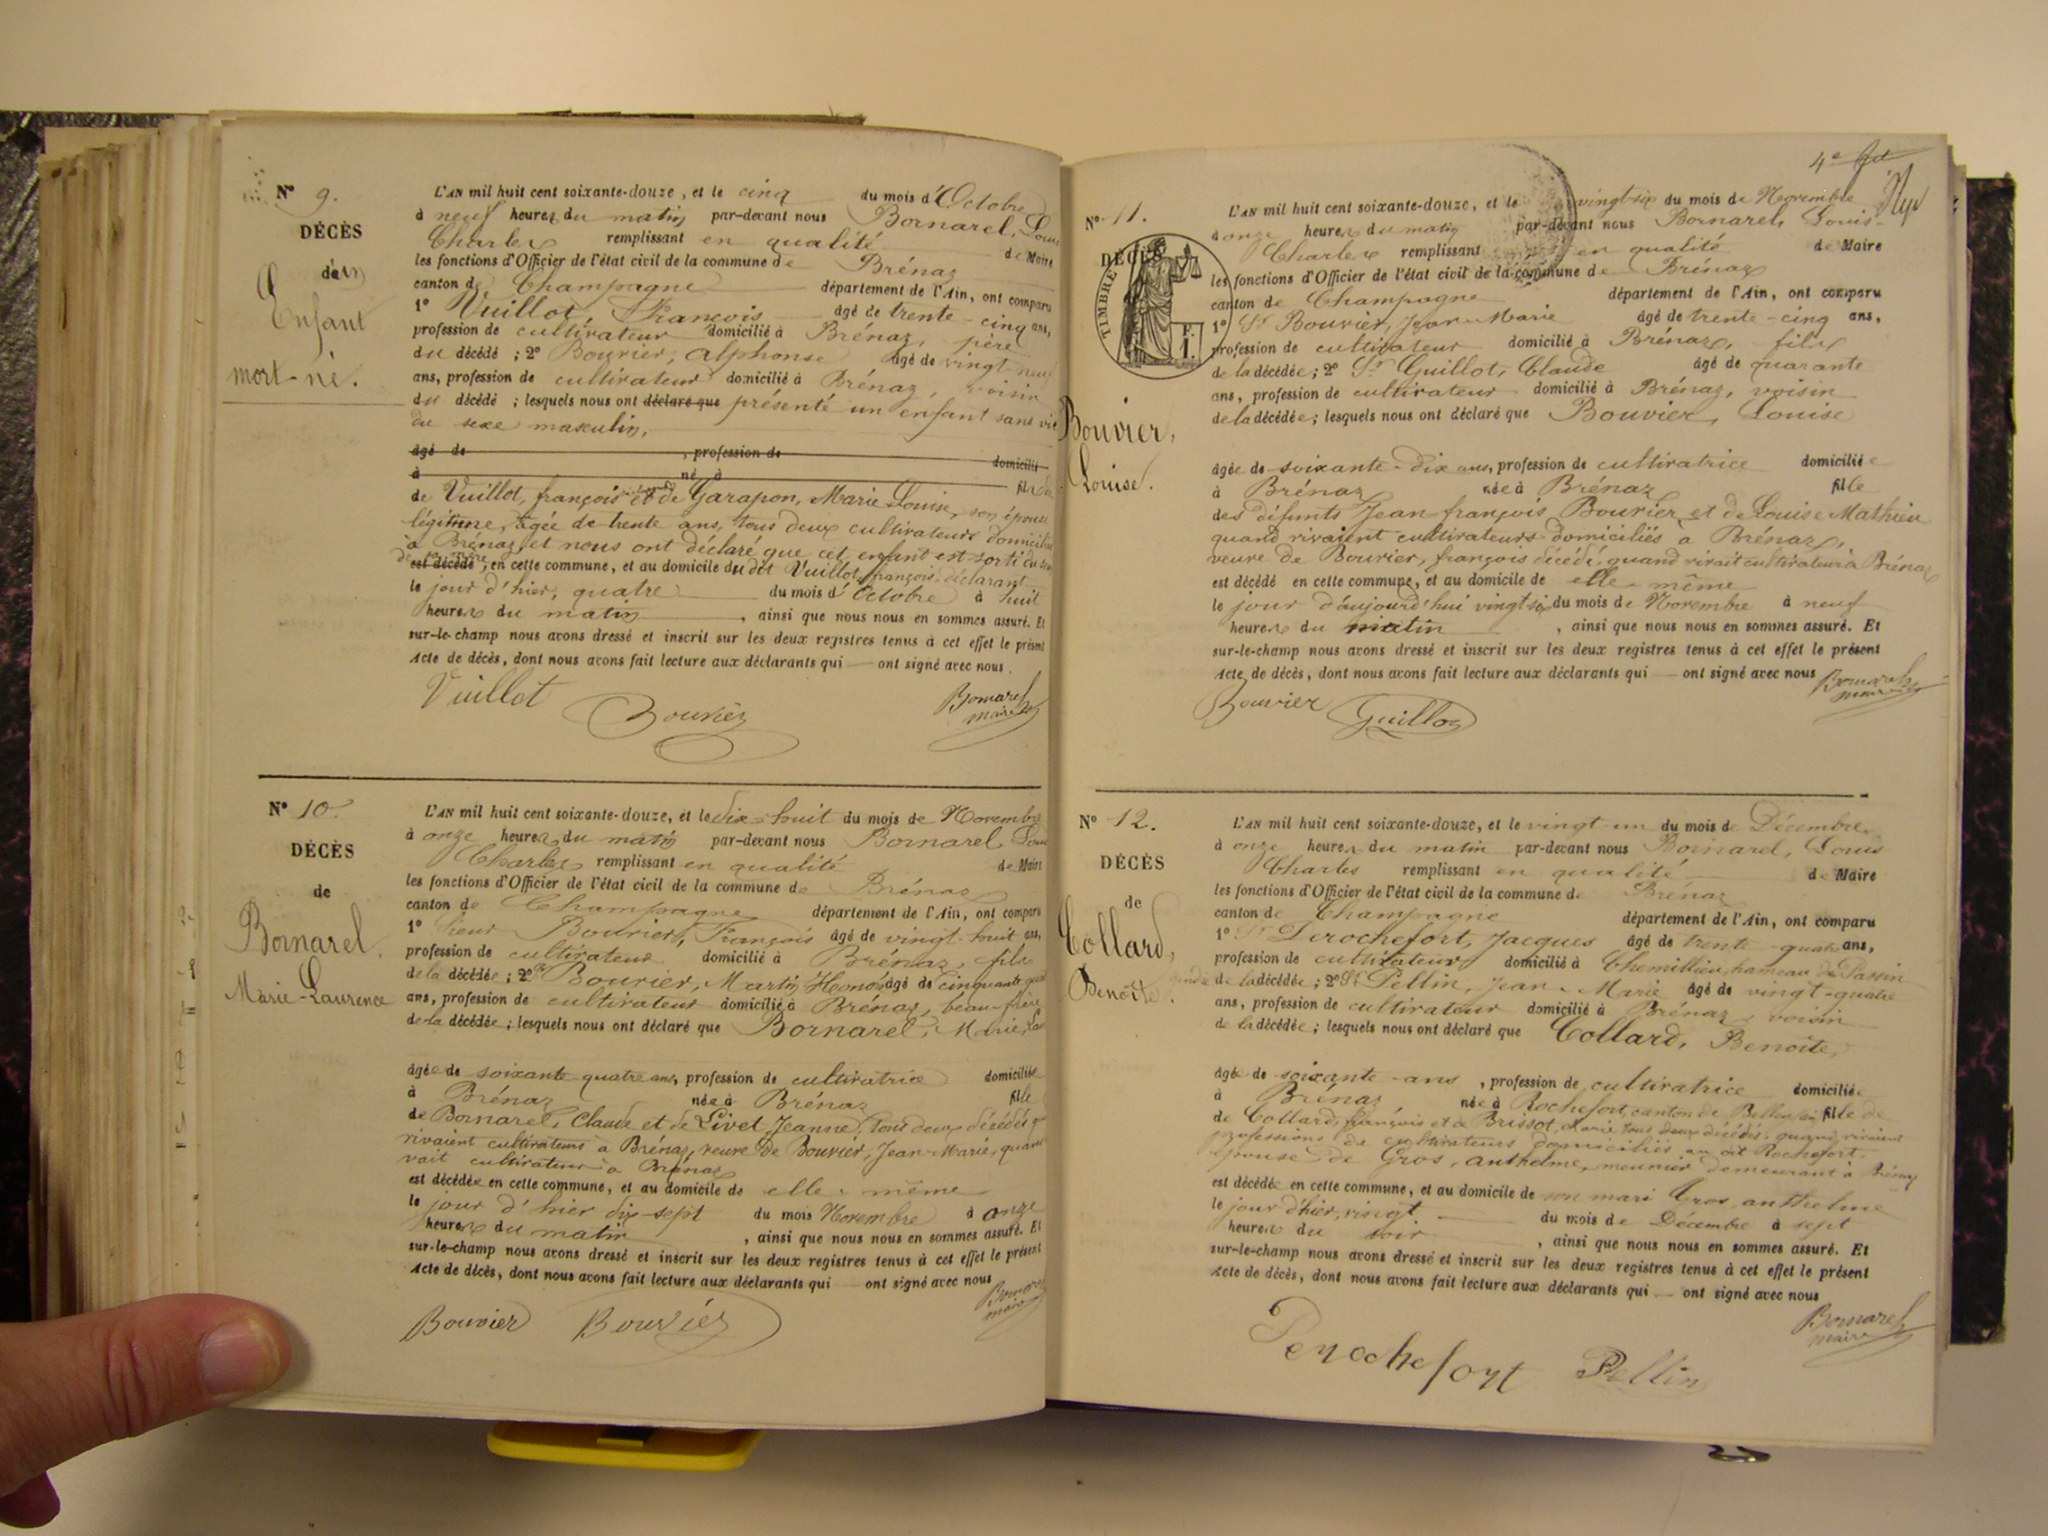 N° 9.
DÉCÈS
d'un
Enfant
mort-né.
L'AN mil huit cent soixante-douze, et le cinq du mois d'Octobre
à neuf heures du matin par-devant nous Bornarel, Louis
Charles remplissant en qualité de Maire
les fonctions d'Officier de l'état civil de la commune de Brénaz
canton de Champagne département de l'Ain, ont comparu
1° Vuillot, François âgé de trente-cinq ans,
profession de cultivateur domicilié à Brénaz, père
du décédé ; 2° Bouvier, Alphonse âgé de vingt-neuf
ans, profession de cultivateur domicilié à Brénaz, voisin
du décédé ; lesquels nous ont déclaré que présenté un enfant sans vie
du sexe masculin,
âgé de , profession de domicilié
à né à fils
de Vuillot, françois et de Garapon, Marie Louise, son épouse
légitime, âgée de trente ans, tous deux cultivateurs domiciliés
à Brénaz, et nous ont déclaré que cet enfant est sorti du sein
de sa mère
est décédé, en cette commune, et au domicile du dit Vuillot, françois, déclarant
le jour d'hier, quatre du mois d'Octobre à huit
heures du matin , ainsi que nous nous en sommes assuré. Et
sur-le-champ nous avons dressé et inscrit sur les deux registres tenus à cet effet le présent
Acte de décès, dont nous avons fait lecture aux déclarants qui — ont signé avec nous.
Vuillot Bouvier Bornarel
maire
N° 10.
DÉCÈS
de
Bornarel,
Marie-Laurence
L'AN mil huit cent soixante-douze, et le dix-huit du mois de Novembre
à onze heures du matin par-devant nous Bornarel Louis
Charles remplissant en qualité de Maire
les fonctions d'Officier de l'état civil de la commune de Brénaz
canton de Champagne département de l'Ain, ont comparu
1° Sieur Bouvier, François âgé de vingt-huit ans,
profession de cultivateur domicilié à Brénaz, fils
de la décédée ; 2° Sr Bouvier, Martin Honoré âgé de cinquante quatre
ans, profession de cultivateur domicilié à Brénaz, beau-frère
de la décédée ; lesquels nous ont déclaré que Bornarel, Marie La
âgée de soixante quatre ans, profession de cultivatrice domiciliée
à Brénaz née à Brénaz fille
de Bornarel, Claude et de Livet Jeanne, tous deux décédés q
vivaient cultivateurs à Brénaz, veuve de Bouvier, Jean-Marie, quand
vait cultivateur à Brénaz
est décédée en cette commune, et au domicile de elle-même
le jour d'hier dix-sept du mois Novembre à onze
heures du matin , ainsi que nous nous en sommes assuré. Et
sur-le-champ nous avons dressé et inscrit sur les deux registres tenus à cet effet le présent
Acte de décès, dont nous avons fait lecture aux déclarants qui — ont signé avec nous
Bouvier Bouvier Bornarel
maire
4e
N° 11.
DÉCÈS
TIMBRE
Bouvier,
Louise.
L'AN mil huit cent soixante-douze, et le vingt-six du mois de Novembre
à onze heures du matin par-devant nous Bornarel, Louis-
Charles remplissant en qualité de Maire
les fonctions d'Officier de l'état civil de la commune de Brénaz
canton de Champagne département de l'Ain, ont comparu
1° Sr Bouvier, Jean-Marie âgé de trente-cinq ans,
profession de cultivateur domicilié à Brénaz, fils
de la décédée ; 2° Sr Guillot, Claude âgé de quarante
ans, profession de cultivateur domicilié à Brénaz, voisin
de la décédée ; lesquels nous ont déclaré que Bouvier, Louise
âgée de soixante-dix ans, profession de cultivatrice domiciliée
à Brénaz née à Brénaz fille
des défunts Jean-françois Bouvier et de Louise Mathieu
quand vivaient cultivateurs domiciliés à Brénaz,
veuve de Bouvier, françois décédé, quand vivait cultivateur à Brénaz
est décédé en cette commune, et au domicile de elle-même
le jour d'aujourd'hui vingt-six du mois de Novembre à neuf
heures du matin , ainsi que nous nous en sommes assuré. Et
sur-le-champ nous avons dressé et inscrit sur les deux registres tenus à cet effet le présent
Acte de décès, dont nous avons fait lecture aux déclarants qui — ont signé avec nous
Bouvier Guillot Bornarel
maire
N° 12.
DÉCÈS
de
Collard,
Benoîte.
L'AN mil huit cent soixante-douze, et le vingt-un du mois de Décembre
à onze heures du matin par-devant nous Bornarel, Louis
Charles remplissant en qualité de Maire
les fonctions d'Officier de l'état civil de la commune de Brénaz
canton de Champagne département de l'Ain, ont comparu
1° Sr Derochefort, Jacques âgé de trente-quatre ans,
profession de cultivateur domicilié à Chemillieu, hameau de Passin
gendre de la décédée ; 2° Sr Pellin, Jean-Marie âgé de vingt-quatre
ans, profession de cultivateur domicilié à Brénaz, voisin
de la décédée ; lesquels nous ont déclaré que Collard, Benoîte,
âgée de soixante-ans , profession de cultivatrice domiciliée
à Brénaz née à Rochefort, canton de Belley fille de
de Collard, françois et de Brissot, Marie tous deux décédés, quand vivaient
professions de cultivateurs domiciliés au dit Rochefort,
épouse de Gros, anthelme, meunier demeurant à Brénaz
est décédée en cette commune, et au domicile de son mari Gros, anthelme
le jour d'hier, vingt du mois de Décembre à sept
heures du soir , ainsi que nous nous en sommes assuré. Et
sur-le-champ nous avons dressé et inscrit sur les deux registres tenus à cet effet le présent
Acte de décès, dont nous avons fait lecture aux déclarants qui — ont signé avec nous
Derochefort Pellin Bornarel
maire